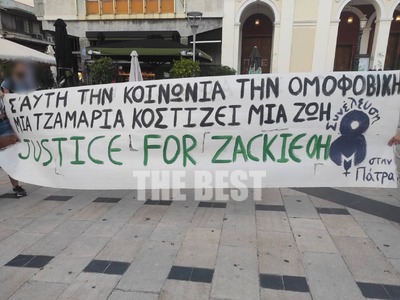 Σ' ΑΥΤΗ ΤΗΝ ΚΟΙΝΩΝΙΑ ΤΗΝ ΟΜΟΦΟΒΙΚΗ
ΜΙΑ ΤΖΑΜΑΡΙΑ ΚΟΣΤΙΖΕΙ ΜΙΑ ΖΩΗ
JUSTICE FOR ZACKIE OH
Συνέλευση
8
Μ
στην
Πάτρα
THE BEST